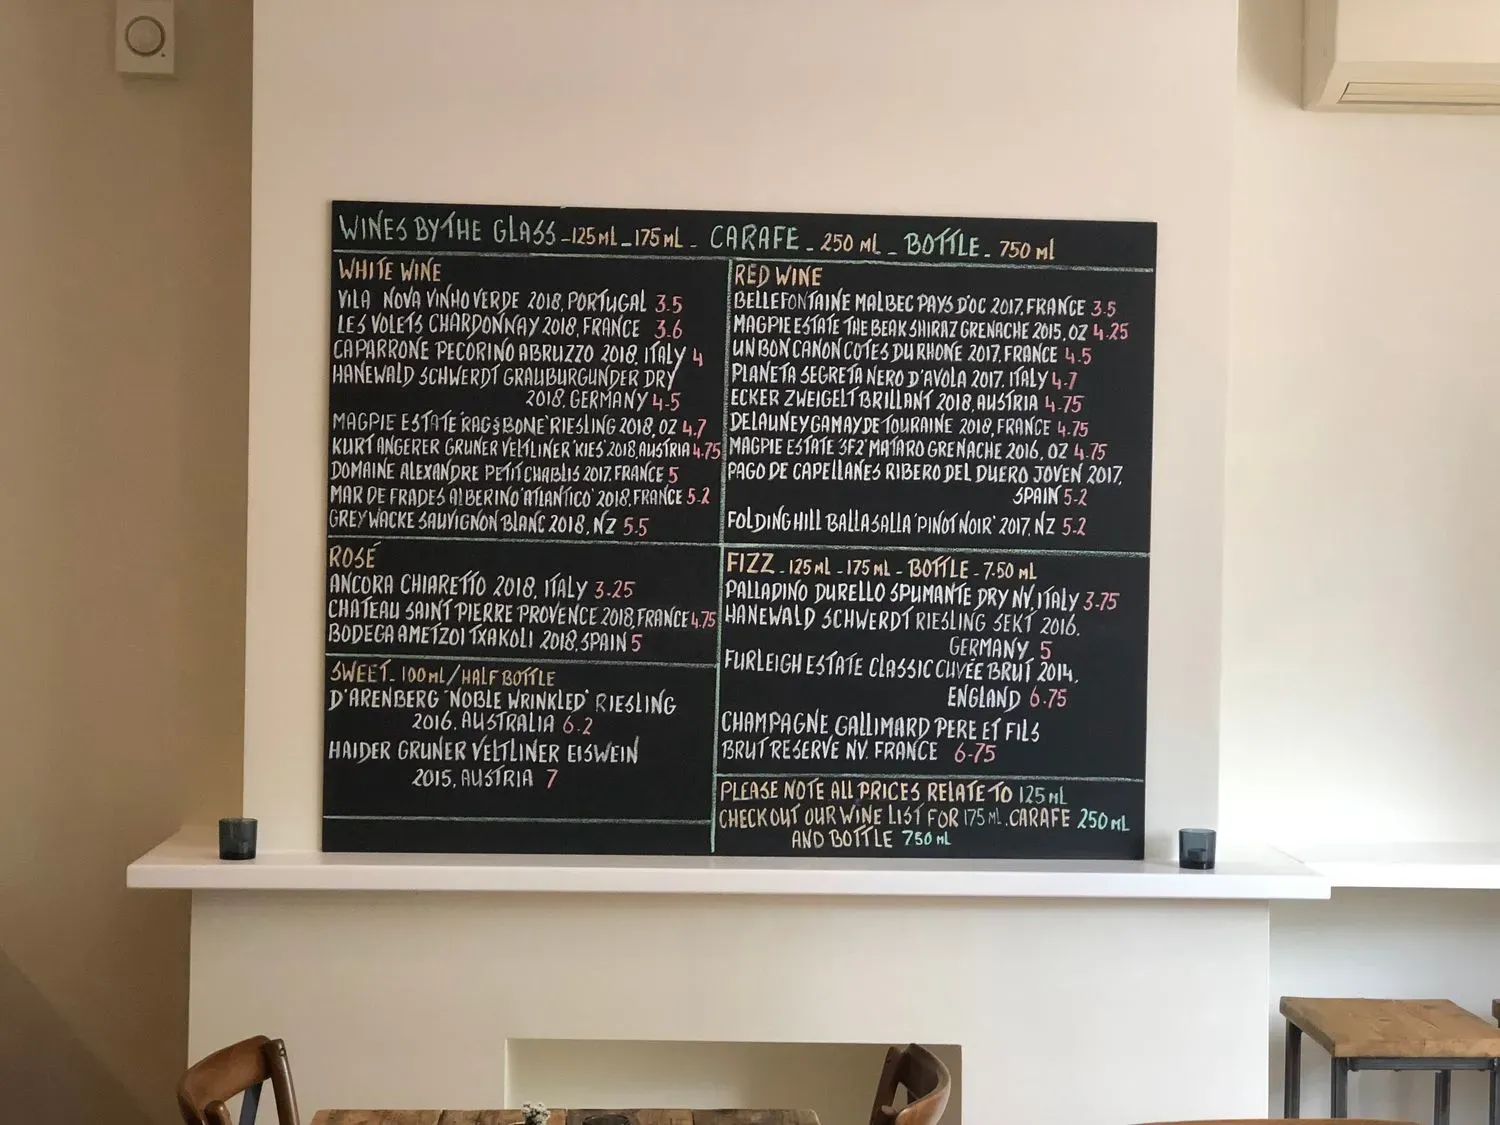 WINES BY THE GLASS -125ML - 175ML - CARAFE - 250ML - BOTTLE - 750 Ml
WHITE WINE
VILA NOVA VINHO VERDE 2018, PORTUGAL 3.5
LES VOLETS CHARDONNAY 2018, FRANCE 3.6
CAPARRONE PECORINO ABRUZZO 2018, ITALY 4
HANEWALD SCHWERDT GRAUBURGUNDER DRY
2018, GERMANY 4-5
MAGPIE ESTATE 'RAG & BONE' RIESLING 2018, OZ 4.7
KURT ANGERER GRUNER VELTLINER 'KIES' 2018, AUSTRIA 4.75
DOMAINE ALEXANDRE PETIT CHABLIS 2017, FRANCE 5
MAR DE FRADES ALBERINO 'ATLANTICO' 2018, FRANCE 5-2
GREYWACKE SAUVIGNON BLANC 2018, NZ 5.5
ROSÉ
ANCORA CHIARETTO 2018, ITALY 3-25
CHATEAU SAINT PIERRE PROVENCE 2018, FRANCE 4.75
BODEGA AMETZOI TXAKOLI 2018, SPAIN 5
SWEET - 100ML/HALF BOTTLE
D'ARENBERG 'NOBLE WRINKLED' RIESLING
2016, AUSTRALIA 6.2
HAIDER GRUNER VELTLINER EISWEIN
2015, AUSTRIA 7
RED WINE
BELLEFONTAINE MALBEC PAYS D'OC 2017, FRANCE 3.5
MAGPIE ESTATE THE BEAK SHIRAZ GRENACHE 2015, OZ 4.25
UN BON CANON COTES DU RHONE 2017, FRANCE 4.5
PLANETA SEGRETA NERO D'AVOLA 2017, ITALY 4-7
ECKER ZWEIGELT BRILLANT 2018, AUSTRIA 4.75
DELAUNEY GAMAY DE TOURAINE 2018, FRANCE 4.75
MAGPIE ESTATE 'SF2' MATARO GRENACHE 2016, OZ 4.75
PAGO DE CAPELLANES RIBERO DEL DUERO JOVEN 2017,
SPAIN 5-2
FOLDING HILL BALLASALLA 'PINOT NOIR' 2017, NZ 5-2
FIZZ - 125ML - 175ML - BOTTLE - 7.50 ML
PALLADINO DURELLO SPUMANTE DRY NV, ITALY 3-75
HANEWALD SCHWERDT RIESLING SEKT 2016,
GERMANY 5
FURLEIGH ESTATE CLASSIC CUVÉE BRUT 2014,
ENGLAND 6.75
CHAMPAGNE, GALLIMARD PERE ET FILS
BRUT RESERVE NV. FRANCE 6-75
PLEASE NOTE ALL PRICES RELATE TO 125ML
CHECKOUT OUR WINE LIST FOR 175ML, CARAFE 250ML
AND BOTTLE 750 ML